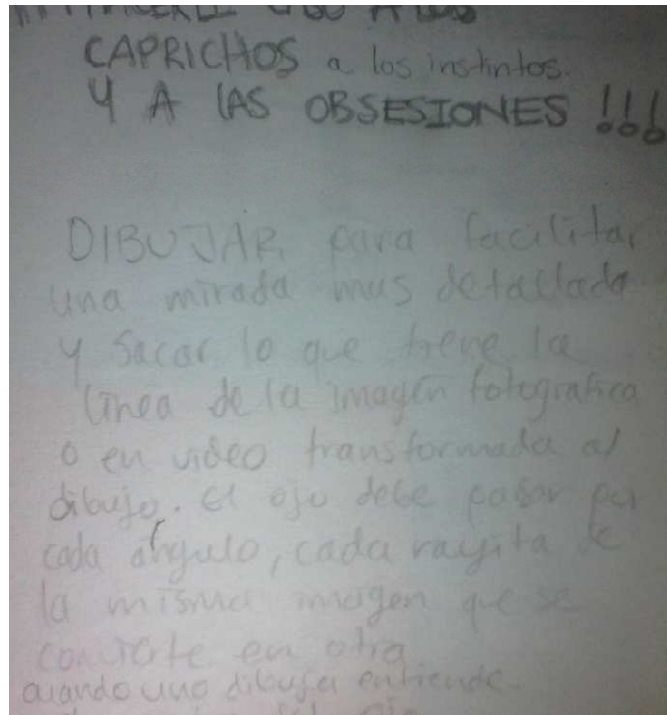 CASO A LOS
CAPRICHOS a los instintos.
Y A LAS OBSESIONES !!!
DIBUJAR para facilitar
una mirada mas detallada
y sacar lo que tiene la
linea de la imagen fotografica
o en video transformada al
dibujo. el ojo debe pasar por
cada ángulo, cada rayita de
la misma imagen que se
convierte en otra
cuando uno dibuja entiende.